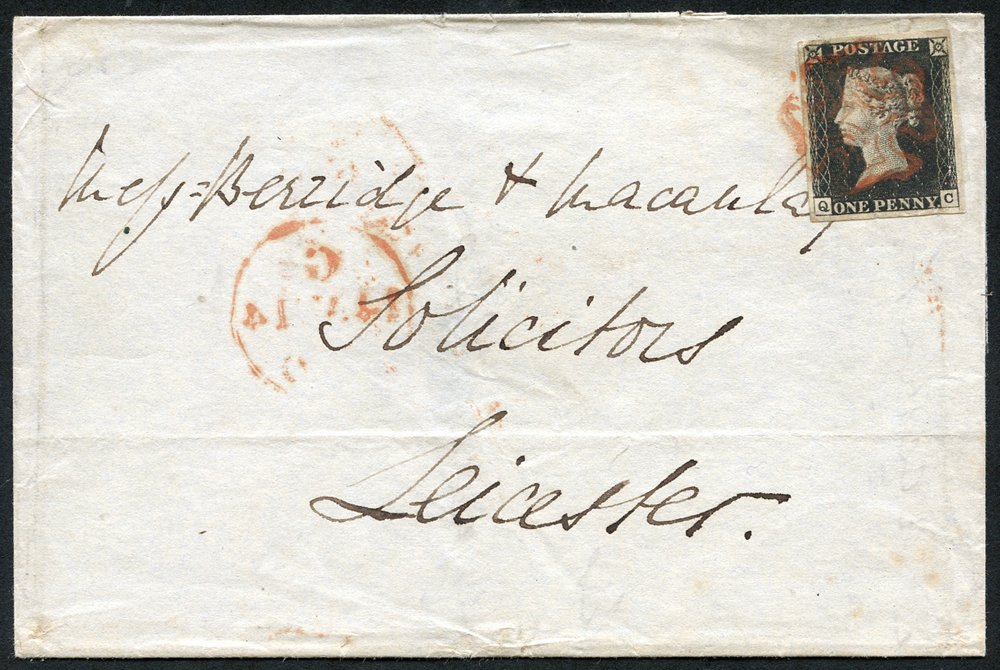 POSTAGE
Q ONE PENNY C
Mess= Berridge & Macaulay
Solicitors
Leicester.